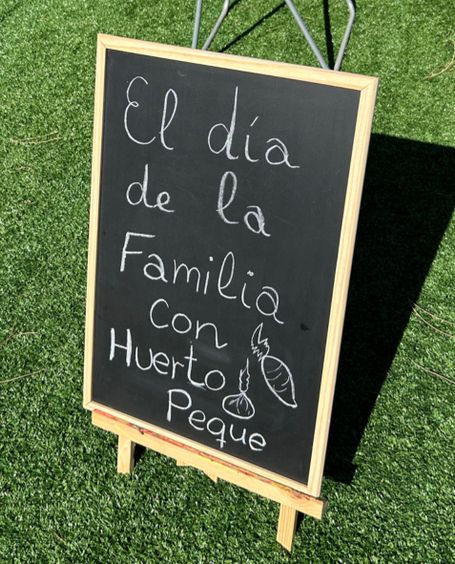 El día
de la
Familia
con
Huerto
Peque